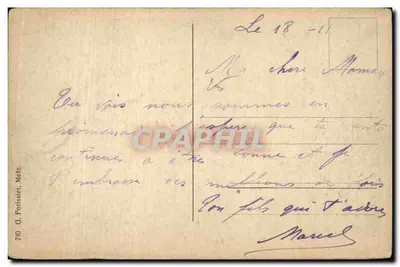 Le 18 - 11
Ma chere Maman
Tu vois nous sommes en
promenade j'espere que ta santé
continue a etre bonne et je
t'embrasse des millions de fois
Ton fils qui t'aime
Marcel
CPAPHIL
740 G. Parissier, Metz.